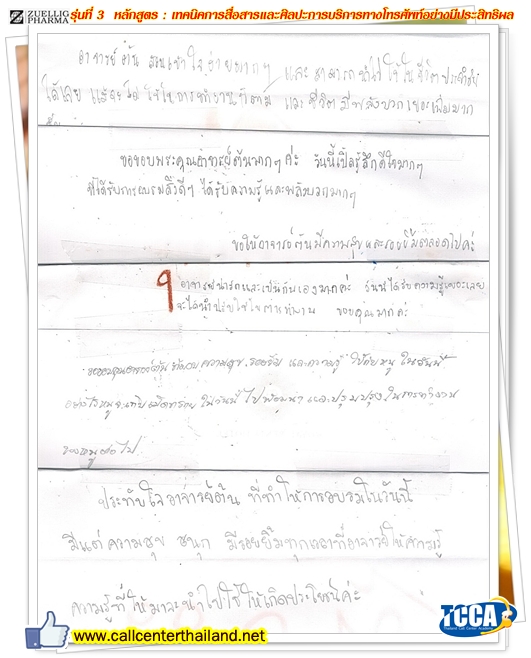 ZUELLIG PHARMA รุ่นที่ 3 หลักสูตร : เทคนิคการสื่อสารและศิลปะการบริการทางโทรศัพท์อย่างมีประสิทธิผล
อาจารย์ต้น สอนเข้าใจง่ายมากๆ และสามารถนำไปใช้ในชีวิตประจำวัน
ได้เลย และ ใช้ในการทำงาน และชีวิตมีพลังบวกเยอะเพิ่มมาก
ขอขอบพระคุณอาจารย์ต้นมากๆ ค่ะ วันนี้เปิ้ลรู้สึกดีใจมากๆ
ที่ได้รับการอบรมสิ่งดีๆ ได้รับความรู้และพลังบวกมากๆ
ขอให้อาจารย์ต้นมีความสุขและรอยยิ้มตลอดไปค่ะ
อาจารย์น่ารักและเป็นกันเองมากค่ะ วันนี้ได้รับความรู้เยอะเลย
จะได้นำไปปรับใช้ในการทำงาน ขอบคุณมากค่ะ
ขอขอบคุณอาจารย์ต้น ที่มอบความสุข, รอยยิ้ม และความรู้ ให้กับหนู ในวันนี้
ในวันนี้ ไปพัฒนา และปรับปรุง ในการทำงาน
ของหนูต่อไป
ประทับใจ อาจารย์ต้น ที่ทำให้การอบรมในวันนี้
มีแต่ความสุข สนุก มีรอยยิ้มทุกเวลาที่อาจารย์ให้ความรู้
ความรู้ที่ให้มาจะนำไปใช้ให้เกิดประโยชน์ค่ะ
Like www.callcenterthailand.net
TCCA
Thailand Call Center Academy